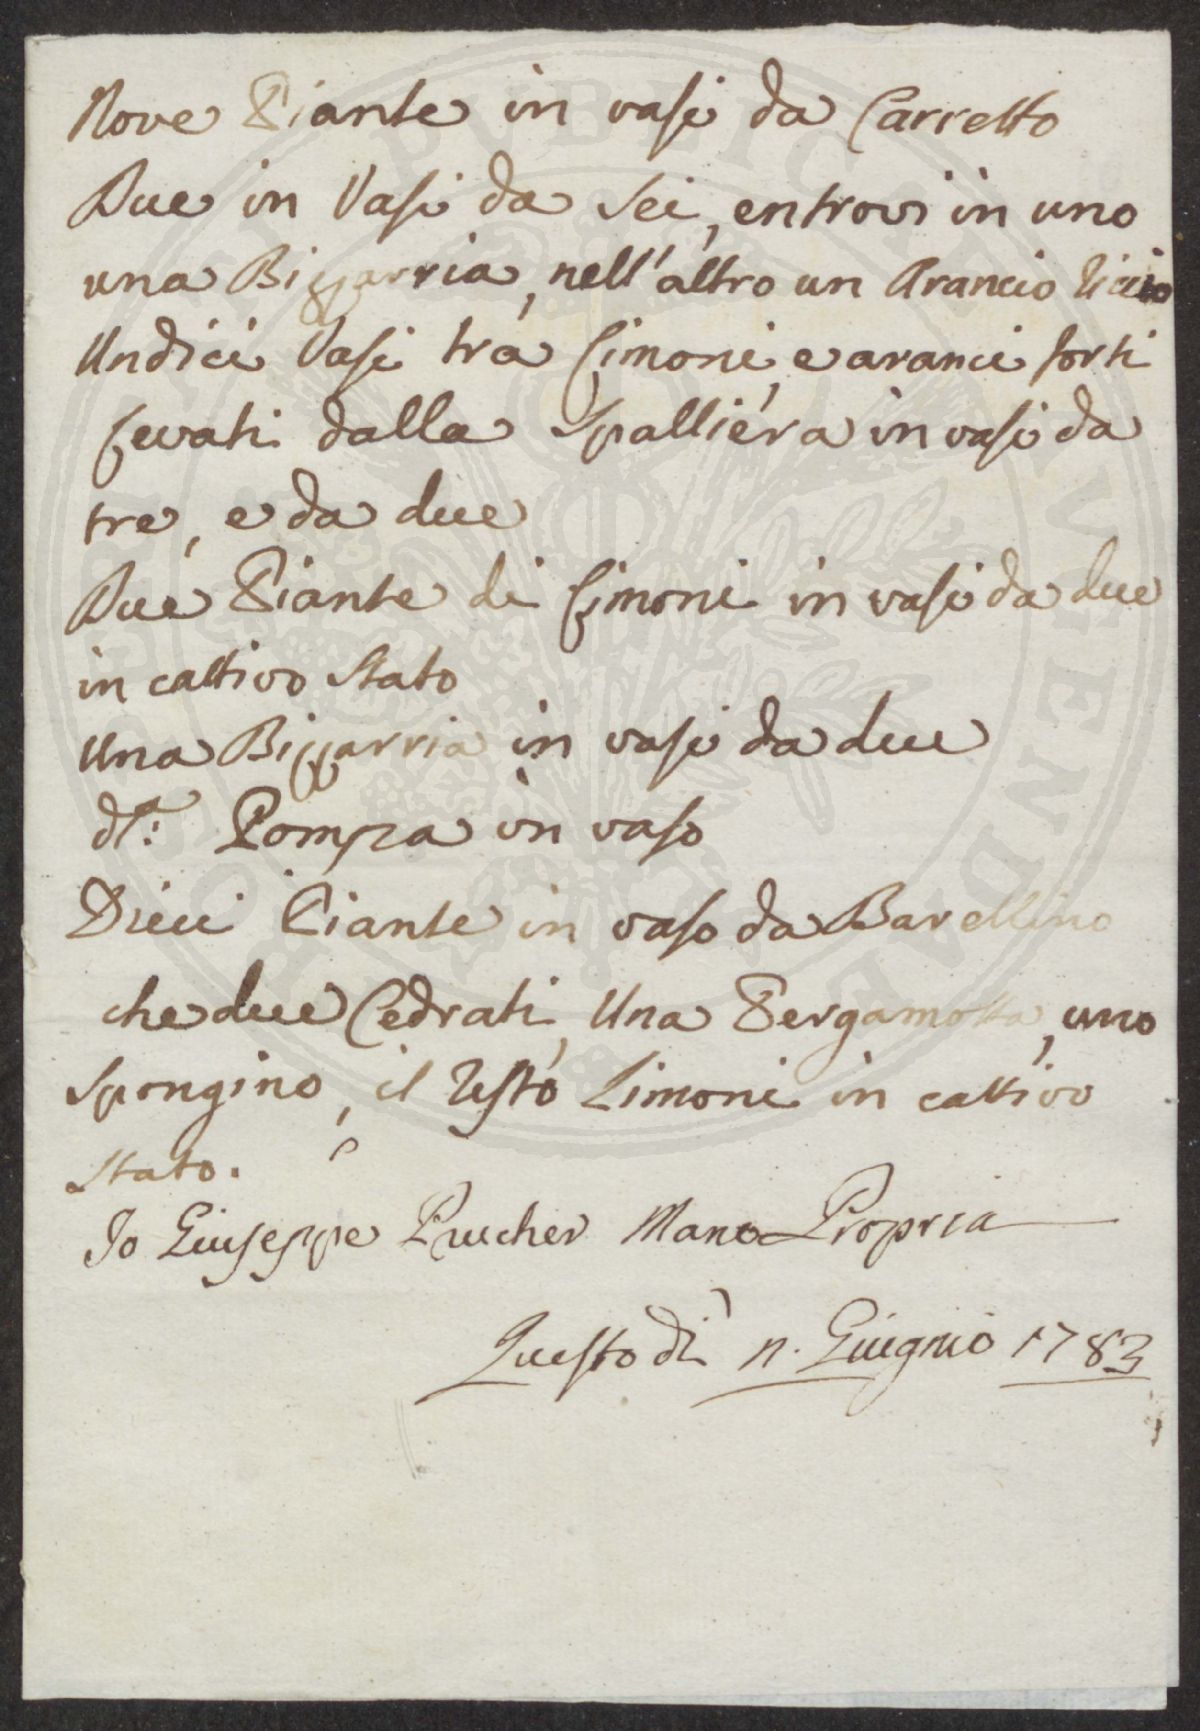 Nove Piante in vasi da Carretto
Due in Vasi da sei, entrovi in uno
una Bizzarria, nell'altro un Arancio Riccio
Undici Vasi tra Limoni, e aranci forti
levati dalla Spalliera in vasi da
tre, e da due
Due Piante di Limoni in vasi da due
in cattivo stato
Una Bizzarria in vasi da due
dª: Pompa in vaso
Dieci Piante in vaso da Barellino
che due Cedrati, Una Bergamotta, uno
Spongino, il Resto Limoni in cattivo
stato.
Io Giuseppe Pucher Mano Propria
Questo dì 11. Giugnio 1783